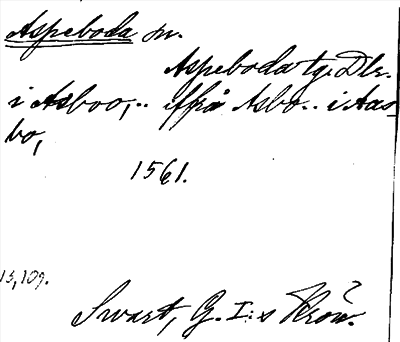 Aspeboda sn.
Aspeboda tg. Dlr.
i Asboo,.. iffrå Asbo.. i Aas
bo,
1561.
15,109.
Swart, G. I:s Krön.